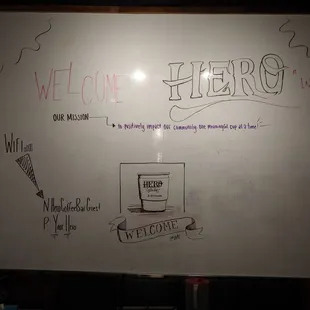 WELCOME
HERO
OUR MISSION
to positively impact our community one meaningful cup at a time!
WIFI
N HeroCoffeeBarGuest
P
HERO
WELCOME